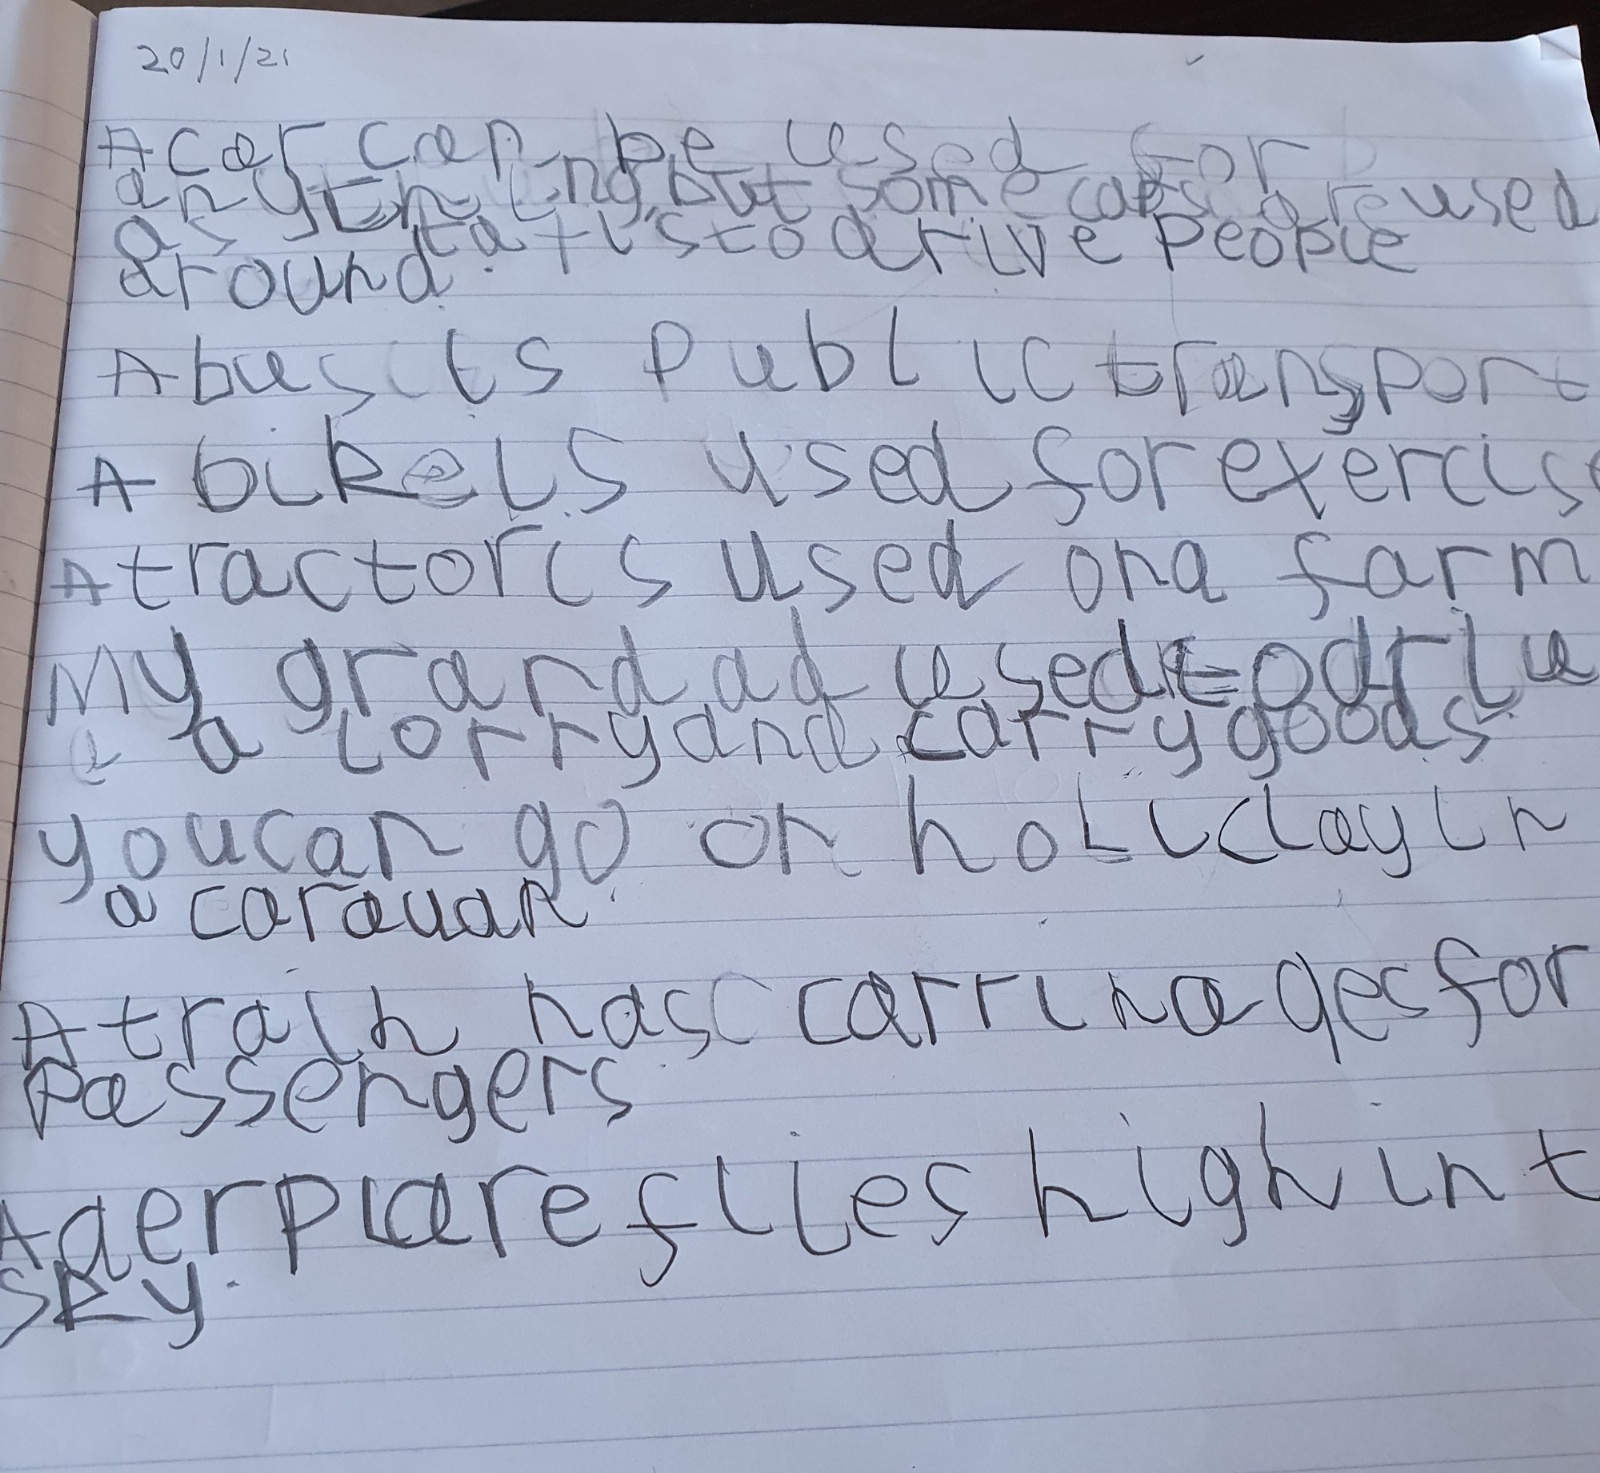 20/1/21
A car can be used for
anything, but some cars are used
as taxis to drive people
around.
A bus is public transport
A bike is used for exercise
A tractor is used on a farm
My grandad used to drive
a lorry and carry goods
you can go on holiday in
a caravan.
A train has carrinages for
passengers.
A aerplane flies high in t
sky.